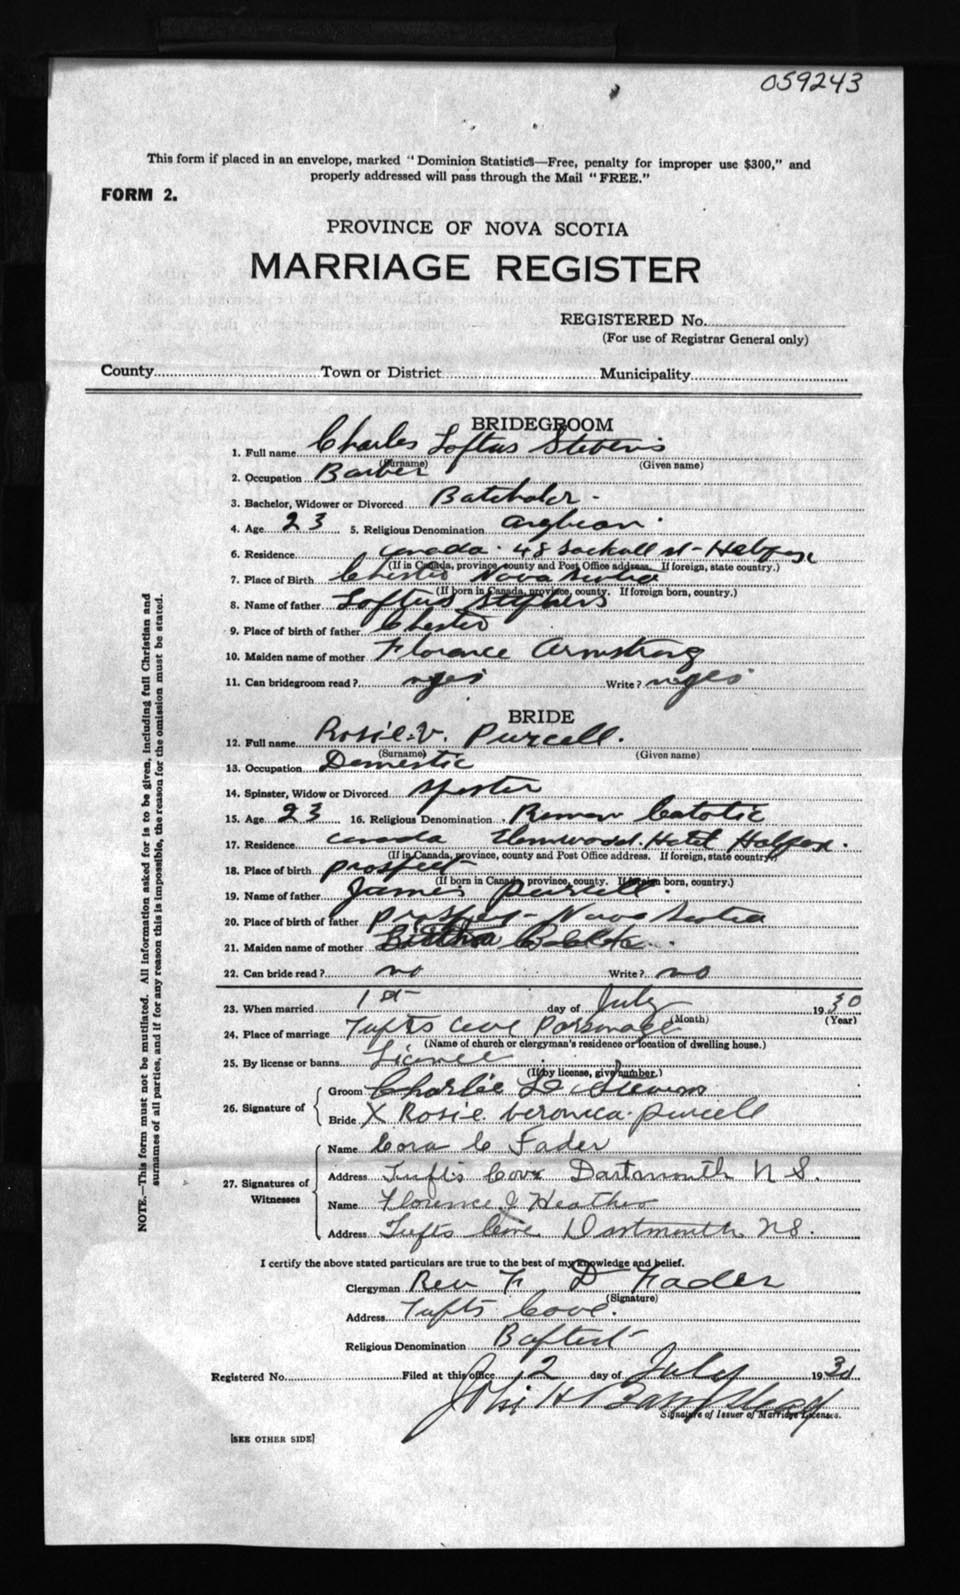 059243
This form if placed in an envelope, marked "Dominion Statistics—Free, penalty for improper use $300," and
properly addressed will pass through the Mail "FREE."
FORM 2.
PROVINCE OF NOVA SCOTIA
MARRIAGE REGISTER
REGISTERED No.
(For use of Registrar General only)
County Town or District Municipality
BRIDEGROOM
1. Full name Charles Loftus Stevens
(Surname) (Given name)
2. Occupation Barber
3. Bachelor, Widower or Divorced Batcholer -
4. Age 23 5. Religious Denomination Anglican
6. Residence Canada 48 Sackvll st - Halifax
(If in Canada, province, county and Post Office address. If foreign, state country.)
7. Place of Birth Chester Nova Scotia
(If born in Canada, province, county. If foreign born, country.)
8. Name of father Loftus Stephens
9. Place of birth of father Chester
10. Maiden name of mother Florence Armstrong
11. Can bridegroom read? yes Write? yes
BRIDE
12. Full name Rosie V. Purcell.
(Surname) (Given name)
13. Occupation Domestic
14. Spinster, Widow or Divorced Spester
15. Age 23 16. Religious Denomination Roman Catolic
17. Residence Canada Elmwood Hotel Halifax.
(If in Canada, province, county and Post Office address. If foreign, state country.)
18. Place of birth prospect
(If born in Canada, province, county. If foreign born, country.)
19. Name of father James Purcell
20. Place of birth of father - Nova Scotia
21. Maiden name of mother Bertha
22. Can bride read? no Write? no
23. When married 1st day of July 1930
(Month) (Year)
24. Place of marriage Tufts Cove Parsonage
(Name of church or clergyman's residence or location of dwelling house.)
25. By license or banns Licence
(If by license, give number.)
26. Signature of Groom Charlie L Stevens
Bride X Rosie Veronica Purcell
27. Signatures of Witnesses Name Cora C Fader
Address Tufts Cove Dartmouth N S.
Name Florence J Heather
Address Tufts Cove Dartmouth N S.
I certify the above stated particulars are true to the best of my knowledge and belief.
Clergyman Rev F D Fader
(Signature)
Address Tufts Cove.
Religious Denomination Baptist
Registered No. Filed at this office 2 day of July 1930
Signature of Issuer of Marriage Licenses.
[SEE OTHER SIDE]
NOTE.—This form must not be mutilated. All information asked for is to be given, including full Christian and
surnames of all parties, and if for any reason this is impossible, the reason for the omission must be stated.